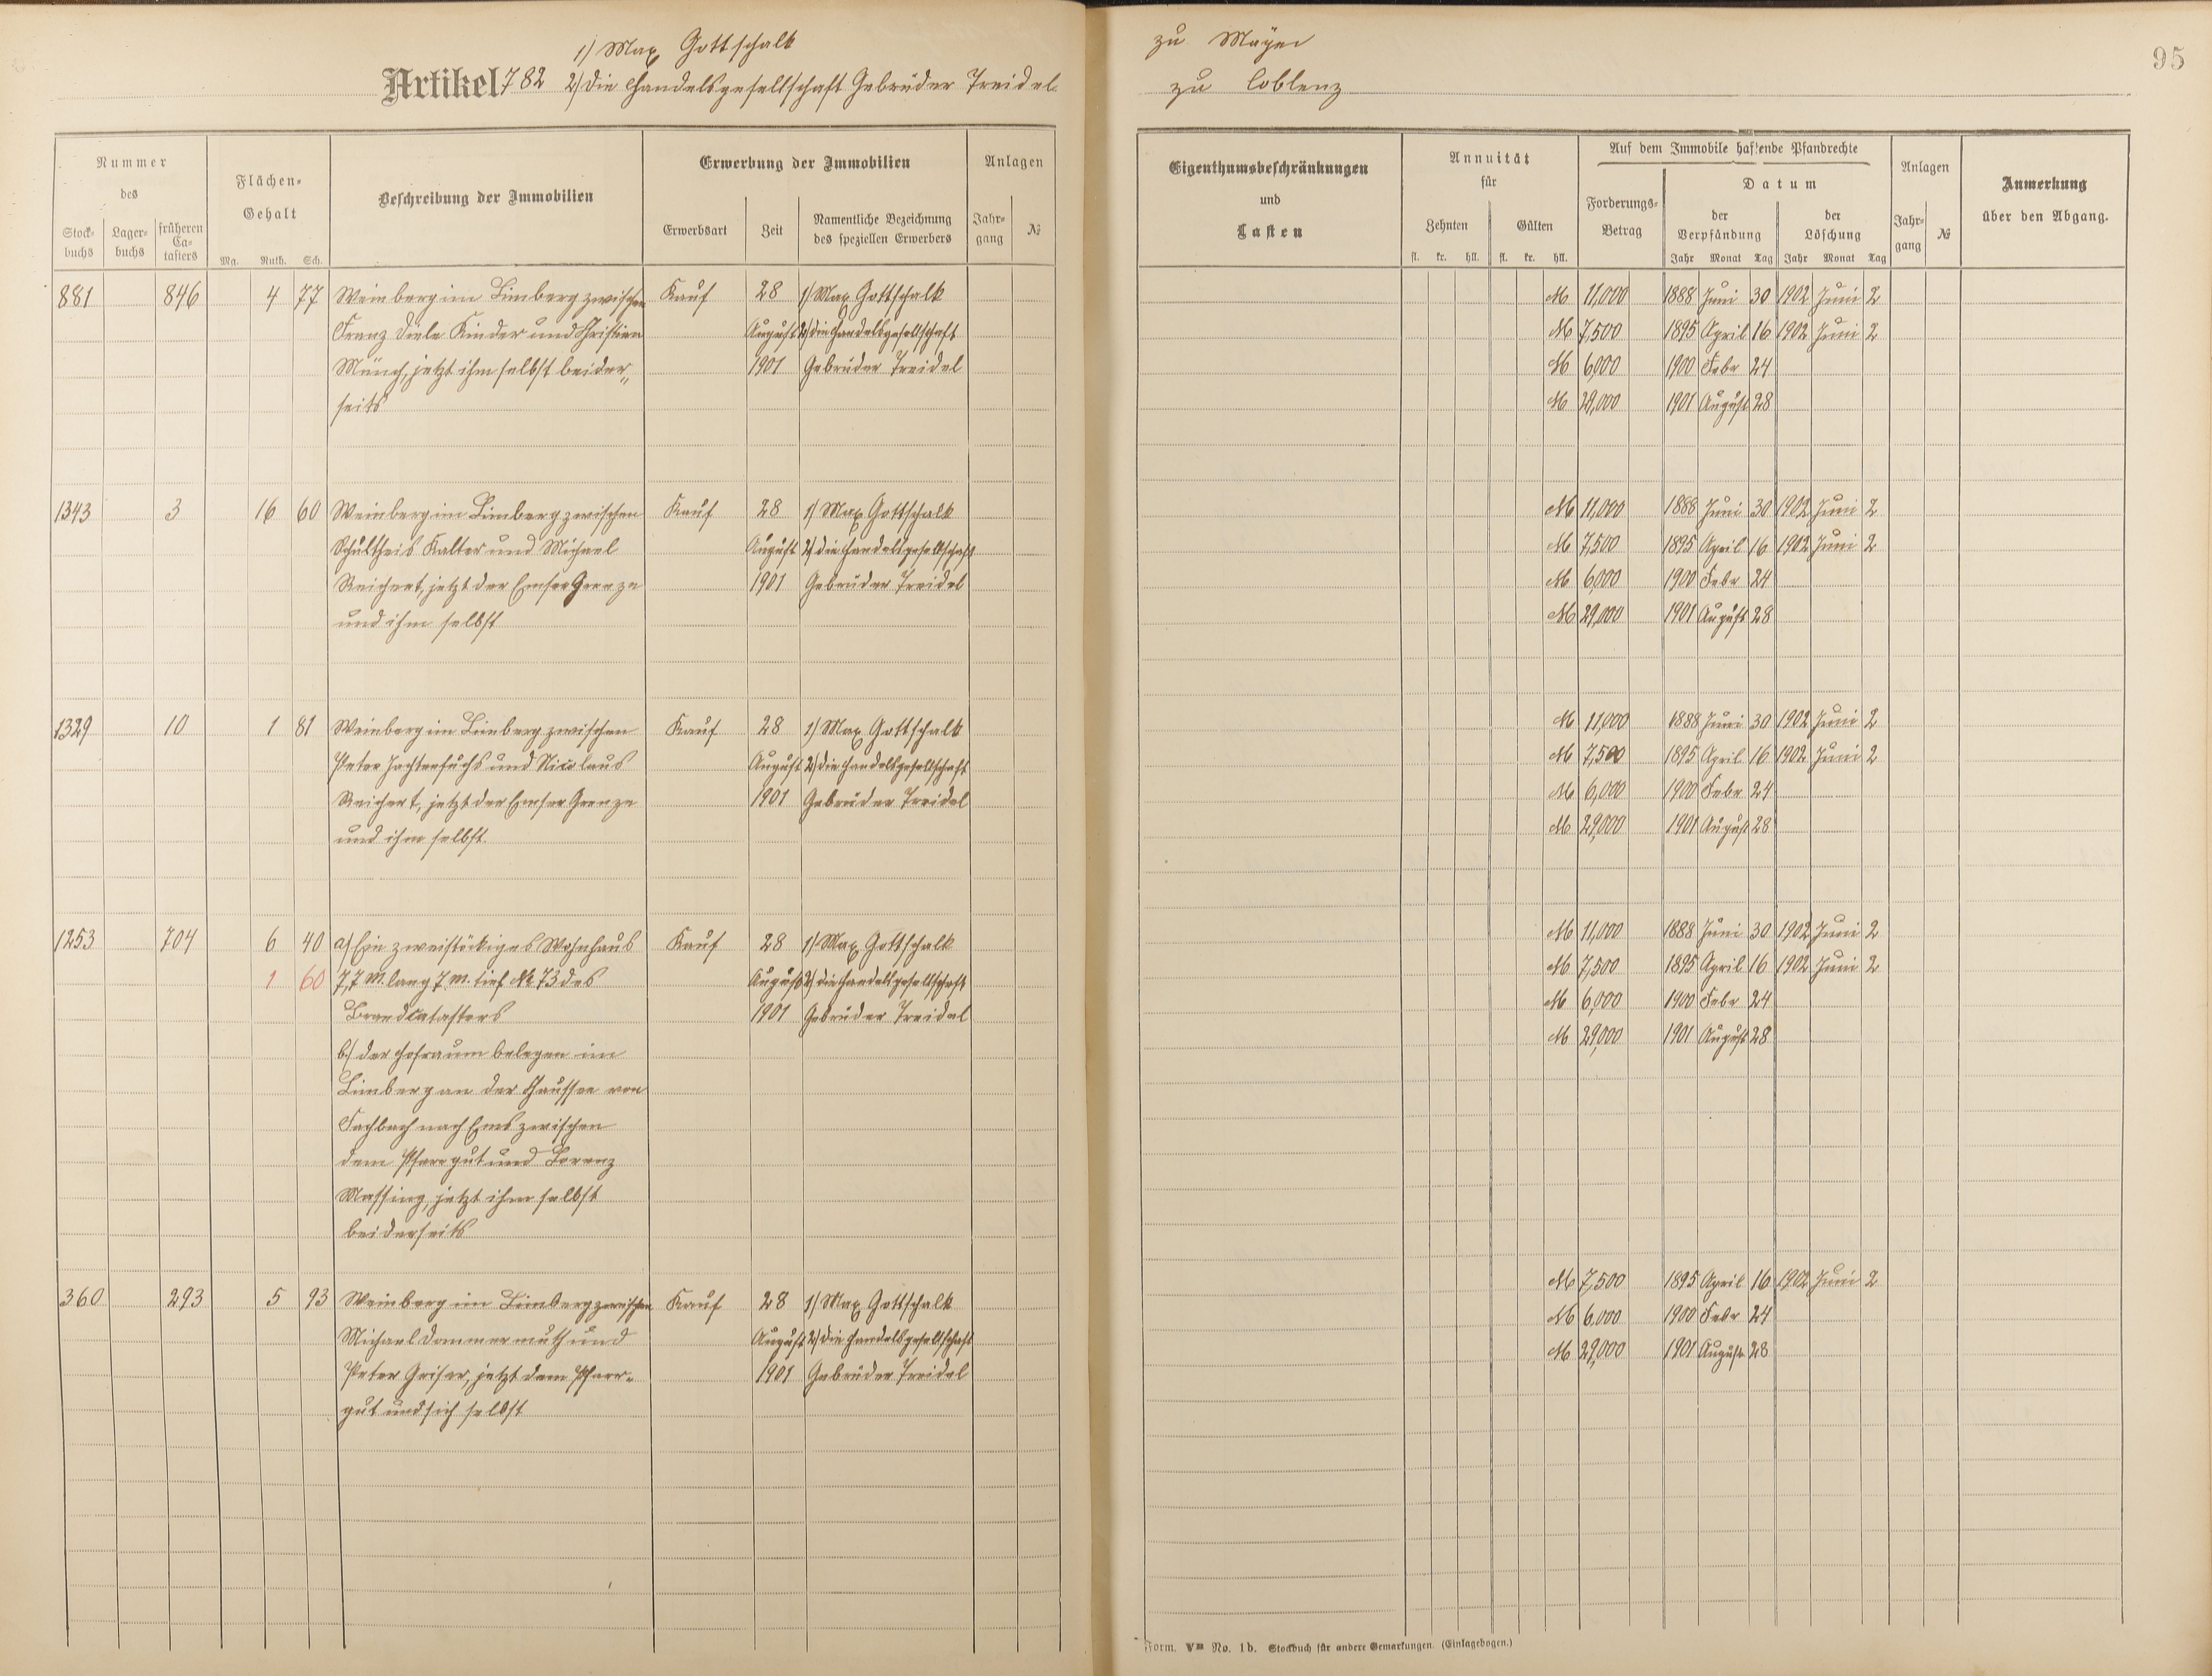 1) Max Gottschalk zu Mayen
Artikel 782 2) Die Handelsgesellschaft Gebrüder Treidel zu Coblenz
95
Nummer
des
Stock-
buchs
Lager-
buchs
früheren
Ca-
tasters
Flächen-
Gehalt
Mg. Ruth. Sch.
Beschreibung der Immobilien
Erwerbung der Immobilien
Erwerbsart
Zeit
Namentliche Bezeichnung
des speziellen Erwerbers
Anlagen
Jahr-
gang
№
881 846 4 77 Weinberg im Limberg zwischen Kauf 28 1) Max Gottschalk
Franz Diele Kinder und Christian August 2) die Handelsgesellschaft
Münch, jetzt ihm selbst beider- 1901 Gebrüder Treidel
seits
1343 3 16 60 Weinberg im Limberg zwischen Kauf 28 1) Max Gottschalk
Schultheis Kalter und Michael August 2) die Handelsgesellschaft
Reichert, jetzt der Emser Grenze 1901 Gebrüder Treidel
und ihm selbst
1329 10 1 81 Weinberg im Limberg zwischen Kauf 28 1) Max Gottschalk
Peter Jachtenfuchs und Nicolaus August 2) die Handelsgesellschaft
Reichert, jetzt der Emser Grenze 1901 Gebrüder Treidel
und ihm selbst.
1253 704 6 40 a) Ein zweistöckiges Wohnhaus Kauf 28 1) Max Gottschalk
1 60 7,7 m. lang 7 m. tief № 73 des August 2) die Handelsgesellschaft
Brandcatasters 1901 Gebrüder Treidel
b.) der Hofraum belegen im
Limberg an der Chaussee von
Fachbach nach Ems zwischen
dem Pfarrgut und Lorenz
Massing, jetzt ihm selbst
beiderseits
360 293 5 93 Weinberg im Limberg zwischen Kauf 28 1) Max Gottschalk
Michael Dommermuth und August 2) die Handelsgesellschaft
Peter Griser, jetzt dem Pfarr- 1901 Gebrüder Treidel
gut und sich selbst
Eigenthumsbeschränkungen
und
Lasten
Annuität
für
Zehnten
Gülten
fl. kr. hll. fl. kr. hll.
Auf dem Immobile haftende Pfandrechte
Forderungs-
Betrag
Datum
der
Verpfändung
der
Löschung
Jahr Monat Tag Jahr Monat Tag
Anlagen
Jahr-
gang
№
Anmerkung
über den Abgang.
M 11,000 1888 Juni 30 1902 Juni 2
M 7,500 1895 April 16 1902 Juni 2
M 6,000 1900 Febr 24
M 29,000 1901 August 28
M 11,000 1888 Juni 30 1902 Juni 2
M 7,500 1895 April 16 1902 Juni 2
M 6,000 1900 Febr 24
M 29,000 1901 August 28
M 11,000 1888 Juni 30 1902 Juni 2
M 7,500 1895 April 16 1902 Juni 2
M 6,000 1900 Febr 24
M 29,000 1901 August 28
M 11,000 1888 Juni 30 1902 Juni 2
M 7,500 1895 April 16 1902 Juni 2
M 6,000 1900 Febr 24
M 29,000 1901 August 28
M 7,500 1895 April 16 1902 Juni 2
M 6,000 1900 Febr 24
M 29,000 1901 August 28
Form. No. 1b. Stockbuch für andere Gemarkungen. (Einlagebogen.)